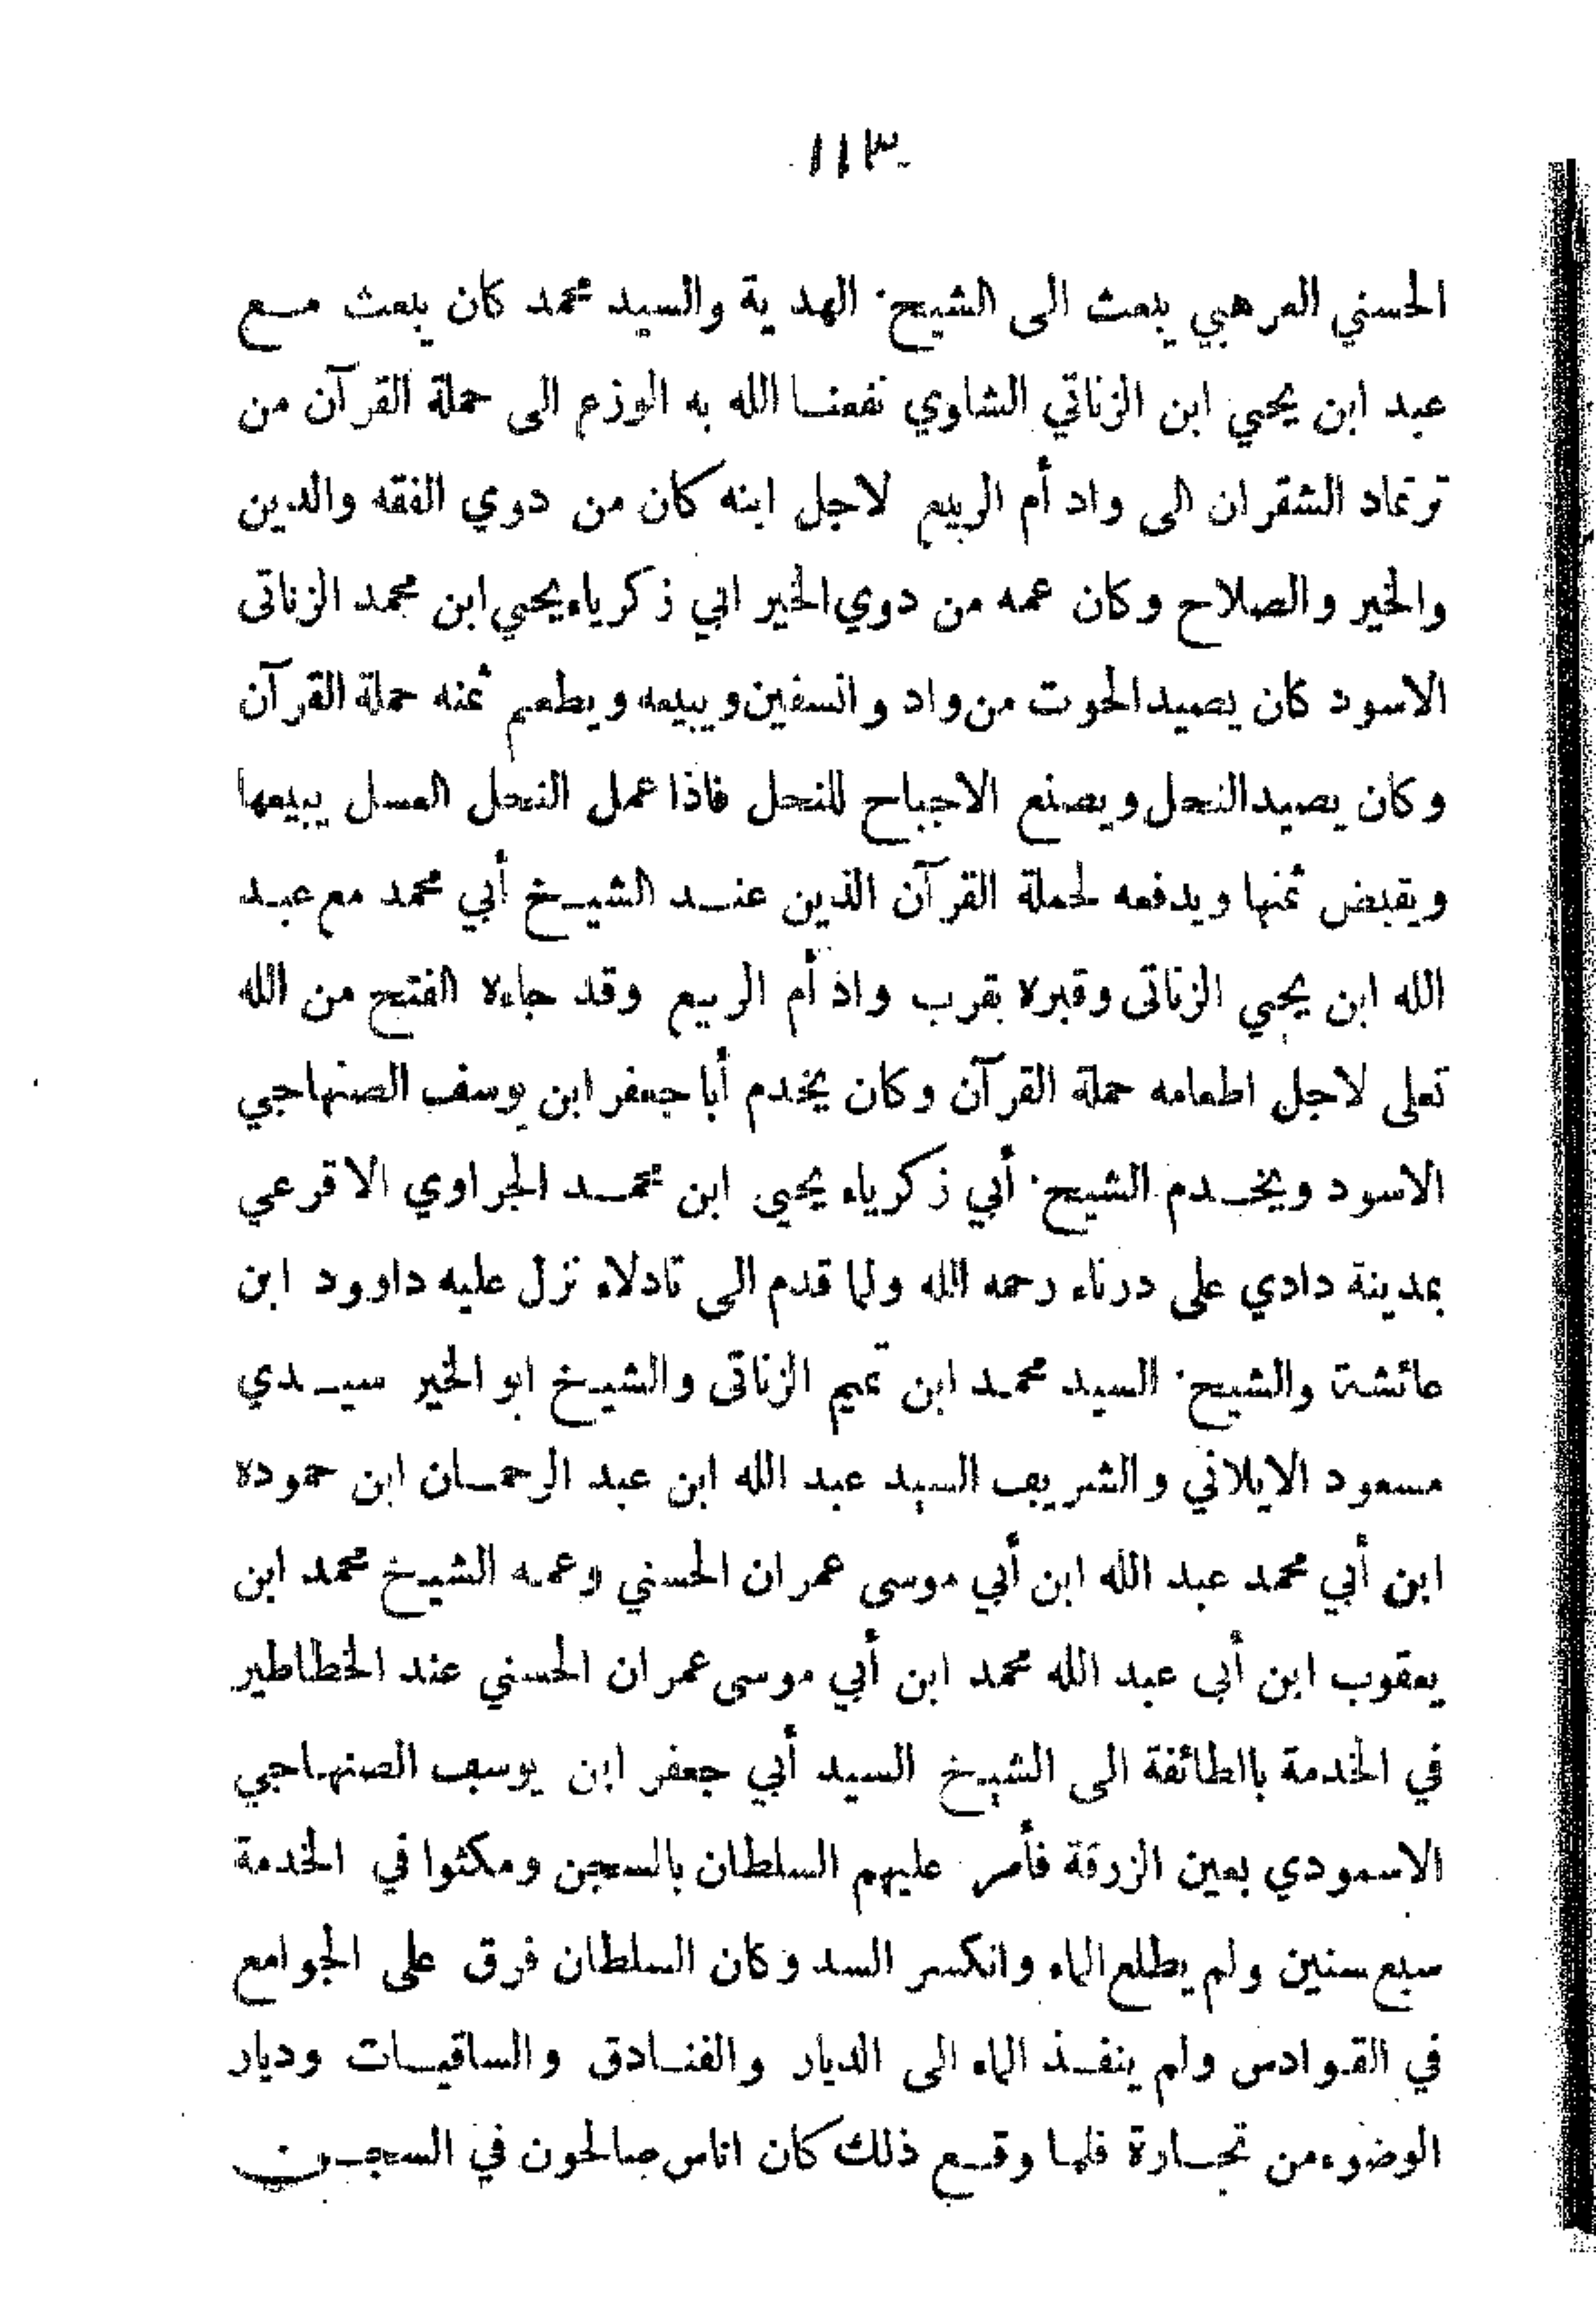 ١١٣
الحسني العرهبي يبعث الى الشيخ الهدية والسيد محمد كان يبعث مع
عبد ابن يحيي ابن الزناتي الشاوي نفعنا الله به الوزع الى حملة القرآن من
ترتماد الشقران الى واد أم الربيع لاجل ابنه كان من دوي الفقه والدين
والخير والصلاح وكان عمه من دوي الخير ابي زكرياء يحيي ابن محمد الزناتى
الاسود كان يصيد الحوت من واد وانسفين ويبيعه ويطعم ثمنه حملة القرآن
وكان يصيد النحل ويصنع الاجباح للنحل فاذا عمل النحل العسل يبيعها
ويقبض ثمنها ويدفعه لحملة القرآن الذين عند الشيخ أبي محمد مع عبد
الله ابن يحيي الزناتى وقبره بقرب واد أم الربيع وقد جاءه الفتح من الله
تعلى لاجل اطعامه حملة القرآن وكان يخدم أبا جعفر ابن يوسف الصنهاجي
الاسود ويخدم الشيخ أبي زكرياء يحيى ابن محمد الجراوي الاقرعي
بمدينة دادي على درناء رحمه الله ولما قدم الى تادلاء نزل عليه داوود ابن
عائشة والشيخ السيد محمد ابن تميم الزناتى والشيخ ابو الخير سيدي
مسعود الايلاني والشريف السيد عبد الله ابن عبد الرحمان ابن حموده
ابن أبي محمد عبد الله ابن أبي موسى عمران الحسني وعمه الشيخ محمد ابن
يعقوب ابن أبى عبد الله محمد ابن أبي موسى عمران الحسني عند الخطاطير
في الخدمة باالطائفة الى الشيخ السيد أبي جعفر ابن يوسف الصنهاجي
الاسمودي بعين الزرقة فأمر عليهم السلطان بالسجن ومكثوا في الخدمة
سبع سنين ولم يطلع الماء وانكسر السد وكان السلطان فرق على الجوامع
في القوادس ولم ينفذ الماء الى الديار والفنادق والساقيات وديار
الوضوء من تجارة فلما وقع ذلك كان اناس صالحون في السجن